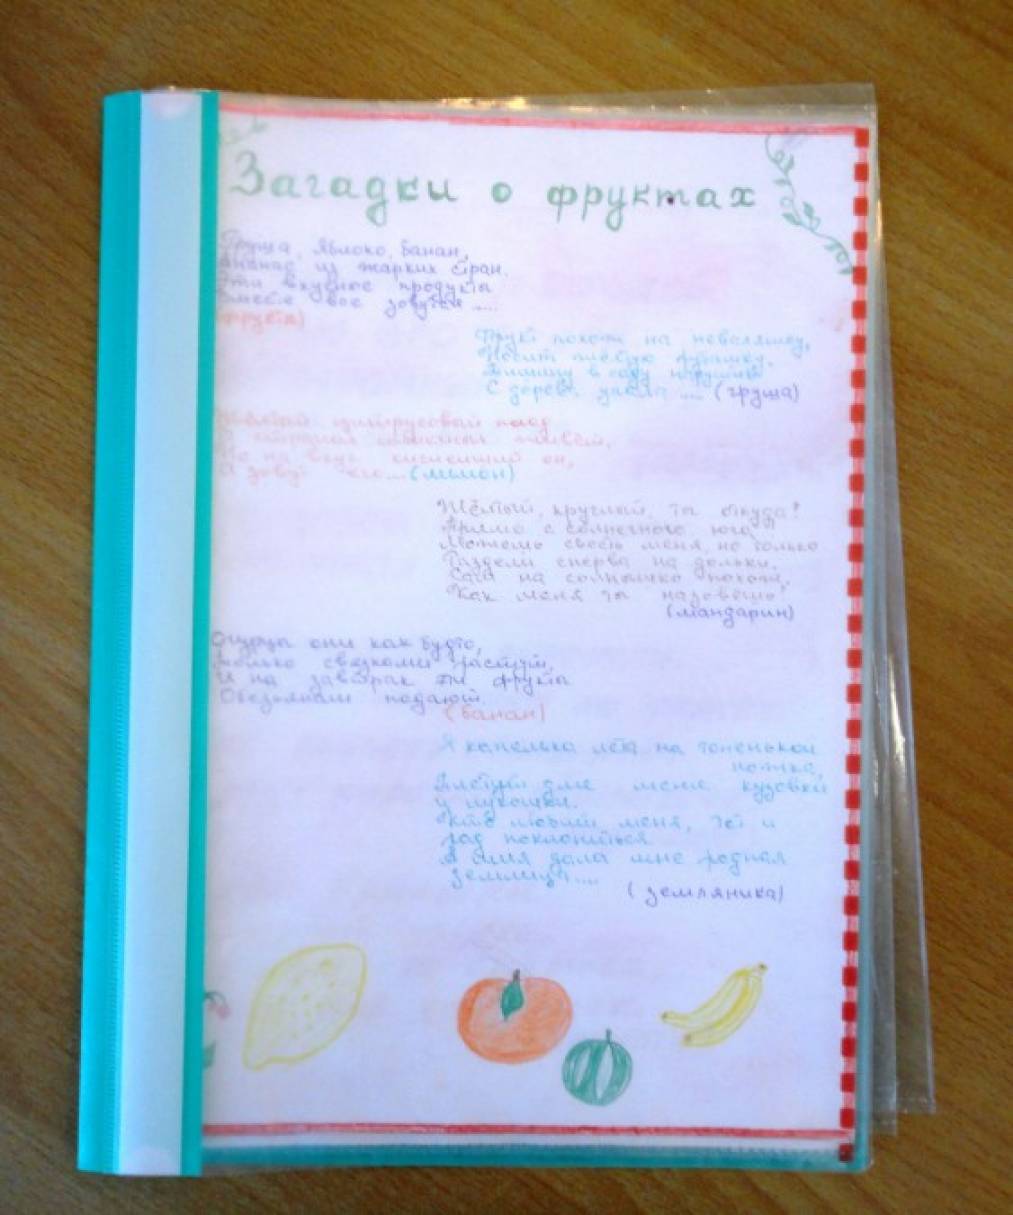 Загадки о фруктах
Груша, яблоко, банан,
Ананас из жарких стран.
Эти вкусные продукты
Вместе все зовутся ....
(фрукты)
Фрукт похож на неваляшку,
Носит жёлтую рубашку.
Тишину в саду нарушив
С дерева упала .... (груша)
Жёлтый цитрусовый плод
В странах солнечных
Но на вкус кислейший он,
А зовут его.... (лимон)
Жёлтый, круглый, ты откуда?
Прямо с солнечного юга.
Можешь съесть меня, но только
Раздели сперва на дольки.
Сам на солнышко похож,
Как меня ты назовёшь?
(мандарин)
Огурцы они как будто,
Только связками растут,
И на завтрак эти фрукты
Обезьянам подают.
(банан)
Я капелька лета на тоненькой
ножке,
Плетут для меня кузовки
и лукошки.
Кто любит меня, тот и
рад поклониться.
А имя дала мне родная
землица....
(земляника)